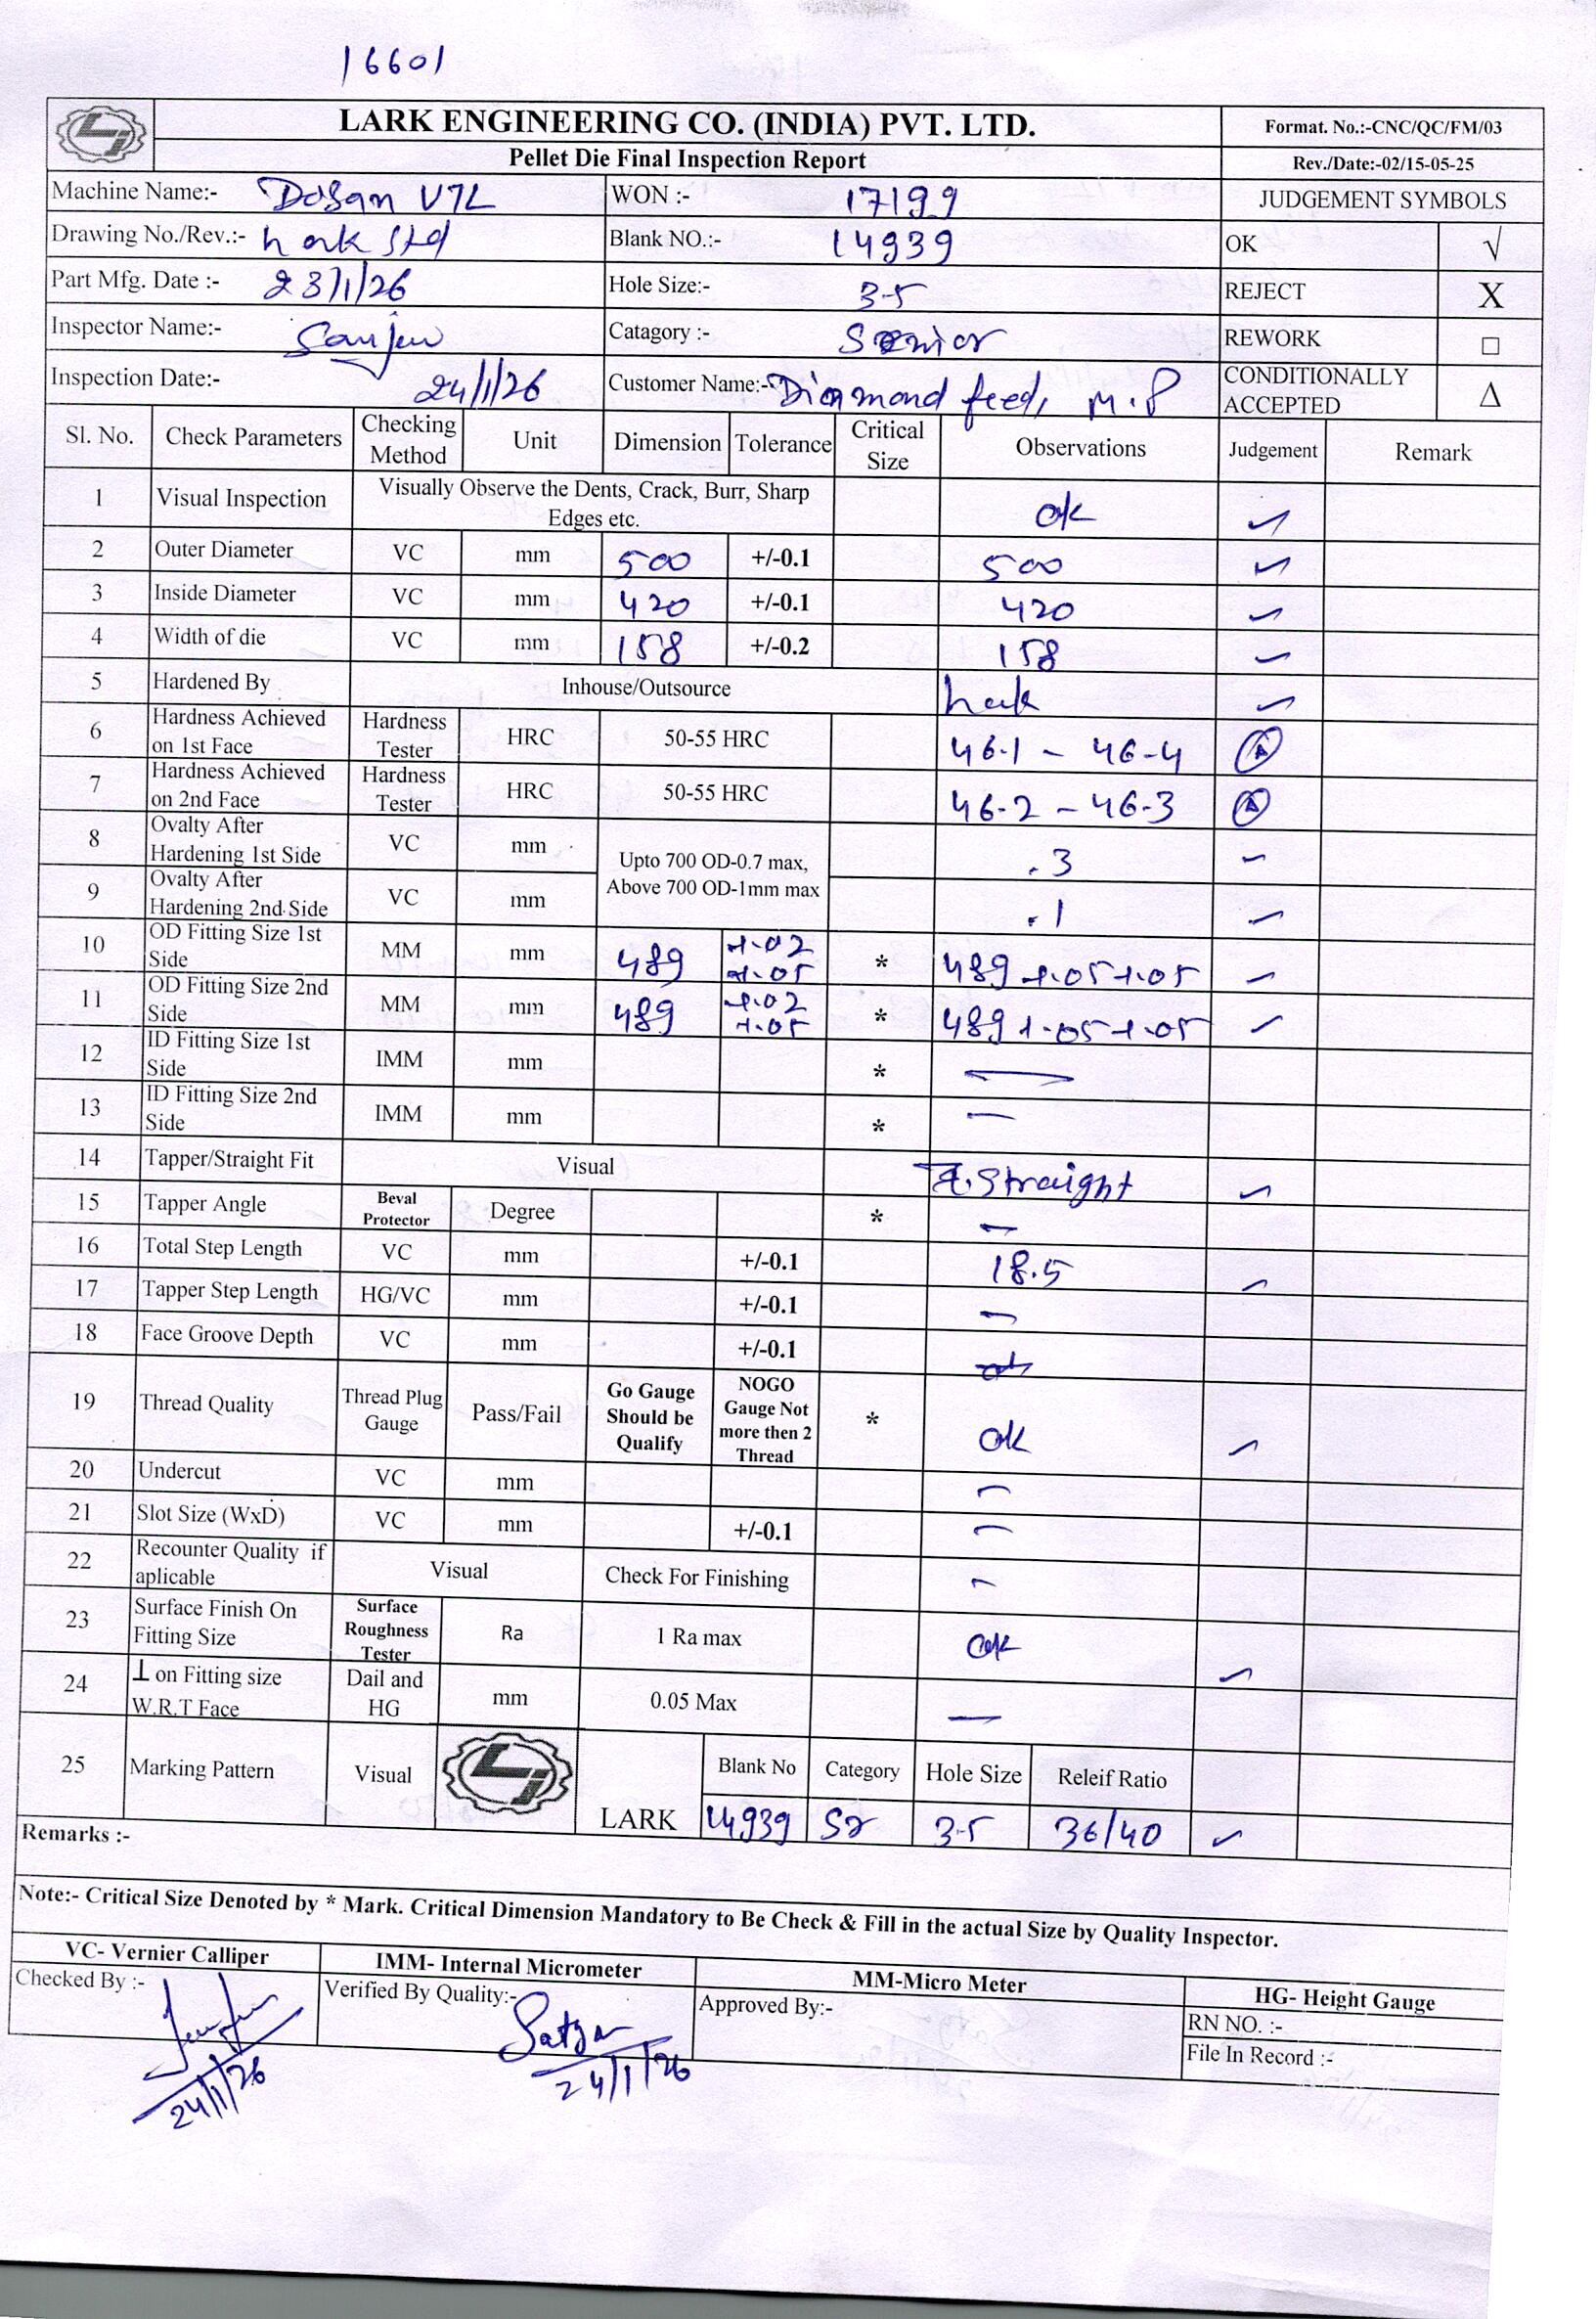 16601
LARK ENGINEERING CO. (INDIA) PVT. LTD. Format. No.:-CNC/QC/FM/03
Pellet Die Final Inspection Report Rev./Date:-02/15-05-25
Machine Name:- Dosan VTL WON :- 17199 JUDGEMENT SYMBOLS
Drawing No./Rev.:- Lark Std Blank NO.:- 14939 OK √
Part Mfg. Date :- 23/1/26 Hole Size:- 3.5 REJECT X
Inspector Name:- Sanjeev Catagory :- Senior REWORK □
Inspection Date:- 24/1/26 Customer Name:- Diamond feed, M.P CONDITIONALLY ACCEPTED Δ
Sl. No. Check Parameters Checking Method Unit Dimension Tolerance Critical Size Observations Judgement Remark
1 Visual Inspection Visually Observe the Dents, Crack, Burr, Sharp Edges etc. ok ✓
2 Outer Diameter VC mm 500 +/-0.1 500 ✓
3 Inside Diameter VC mm 420 +/-0.1 420 ✓
4 Width of die VC mm 158 +/-0.2 158 ✓
5 Hardened By Inhouse/Outsource Lark ✓
6 Hardness Achieved on 1st Face Hardness Tester HRC 50-55 HRC 46.1 - 46.4 Δ
7 Hardness Achieved on 2nd Face Hardness Tester HRC 50-55 HRC 46.2 - 46.3 Δ
8 Ovalty After Hardening 1st Side VC mm Upto 700 OD-0.7 max, Above 700 OD-1mm max .3 ✓
9 Ovalty After Hardening 2nd Side VC mm .1 ✓
10 OD Fitting Size 1st Side MM mm 489 +.02 +.05 * 489 +.05 +.05 ✓
11 OD Fitting Size 2nd Side MM mm 489 +.02 +.05 * 489 +.05 +.05 ✓
12 ID Fitting Size 1st Side IMM mm * —
13 ID Fitting Size 2nd Side IMM mm * —
14 Tapper/Straight Fit Visual Straight ✓
15 Tapper Angle Beval Protector Degree * —
16 Total Step Length VC mm +/-0.1 18.5 ✓
17 Tapper Step Length HG/VC mm +/-0.1 —
18 Face Groove Depth VC mm +/-0.1
19 Thread Quality Thread Plug Gauge Pass/Fail Go Gauge Should be Qualify NOGO Gauge Not more then 2 Thread * ok ✓
20 Undercut VC mm —
21 Slot Size (WxD) VC mm +/-0.1 —
22 Recounter Quality if aplicable Visual Check For Finishing —
23 Surface Finish On Fitting Size Surface Roughness Tester Ra 1 Ra max ok ✓
24 ⊥ on Fitting size W.R.T Face Dail and HG mm 0.05 Max —
25 Marking Pattern Visual LARK Blank No Category Hole Size Releif Ratio
14939 Sr 3.5 36/40 ✓
Remarks :-
Note:- Critical Size Denoted by * Mark. Critical Dimension Mandatory to Be Check & Fill in the actual Size by Quality Inspector.
VC- Vernier Calliper IMM- Internal Micrometer MM-Micro Meter HG- Height Gauge
Checked By :- Verified By Quality:- Satya Approved By:- RN NO. :-
File In Record :-
24/1/26 24/1/26